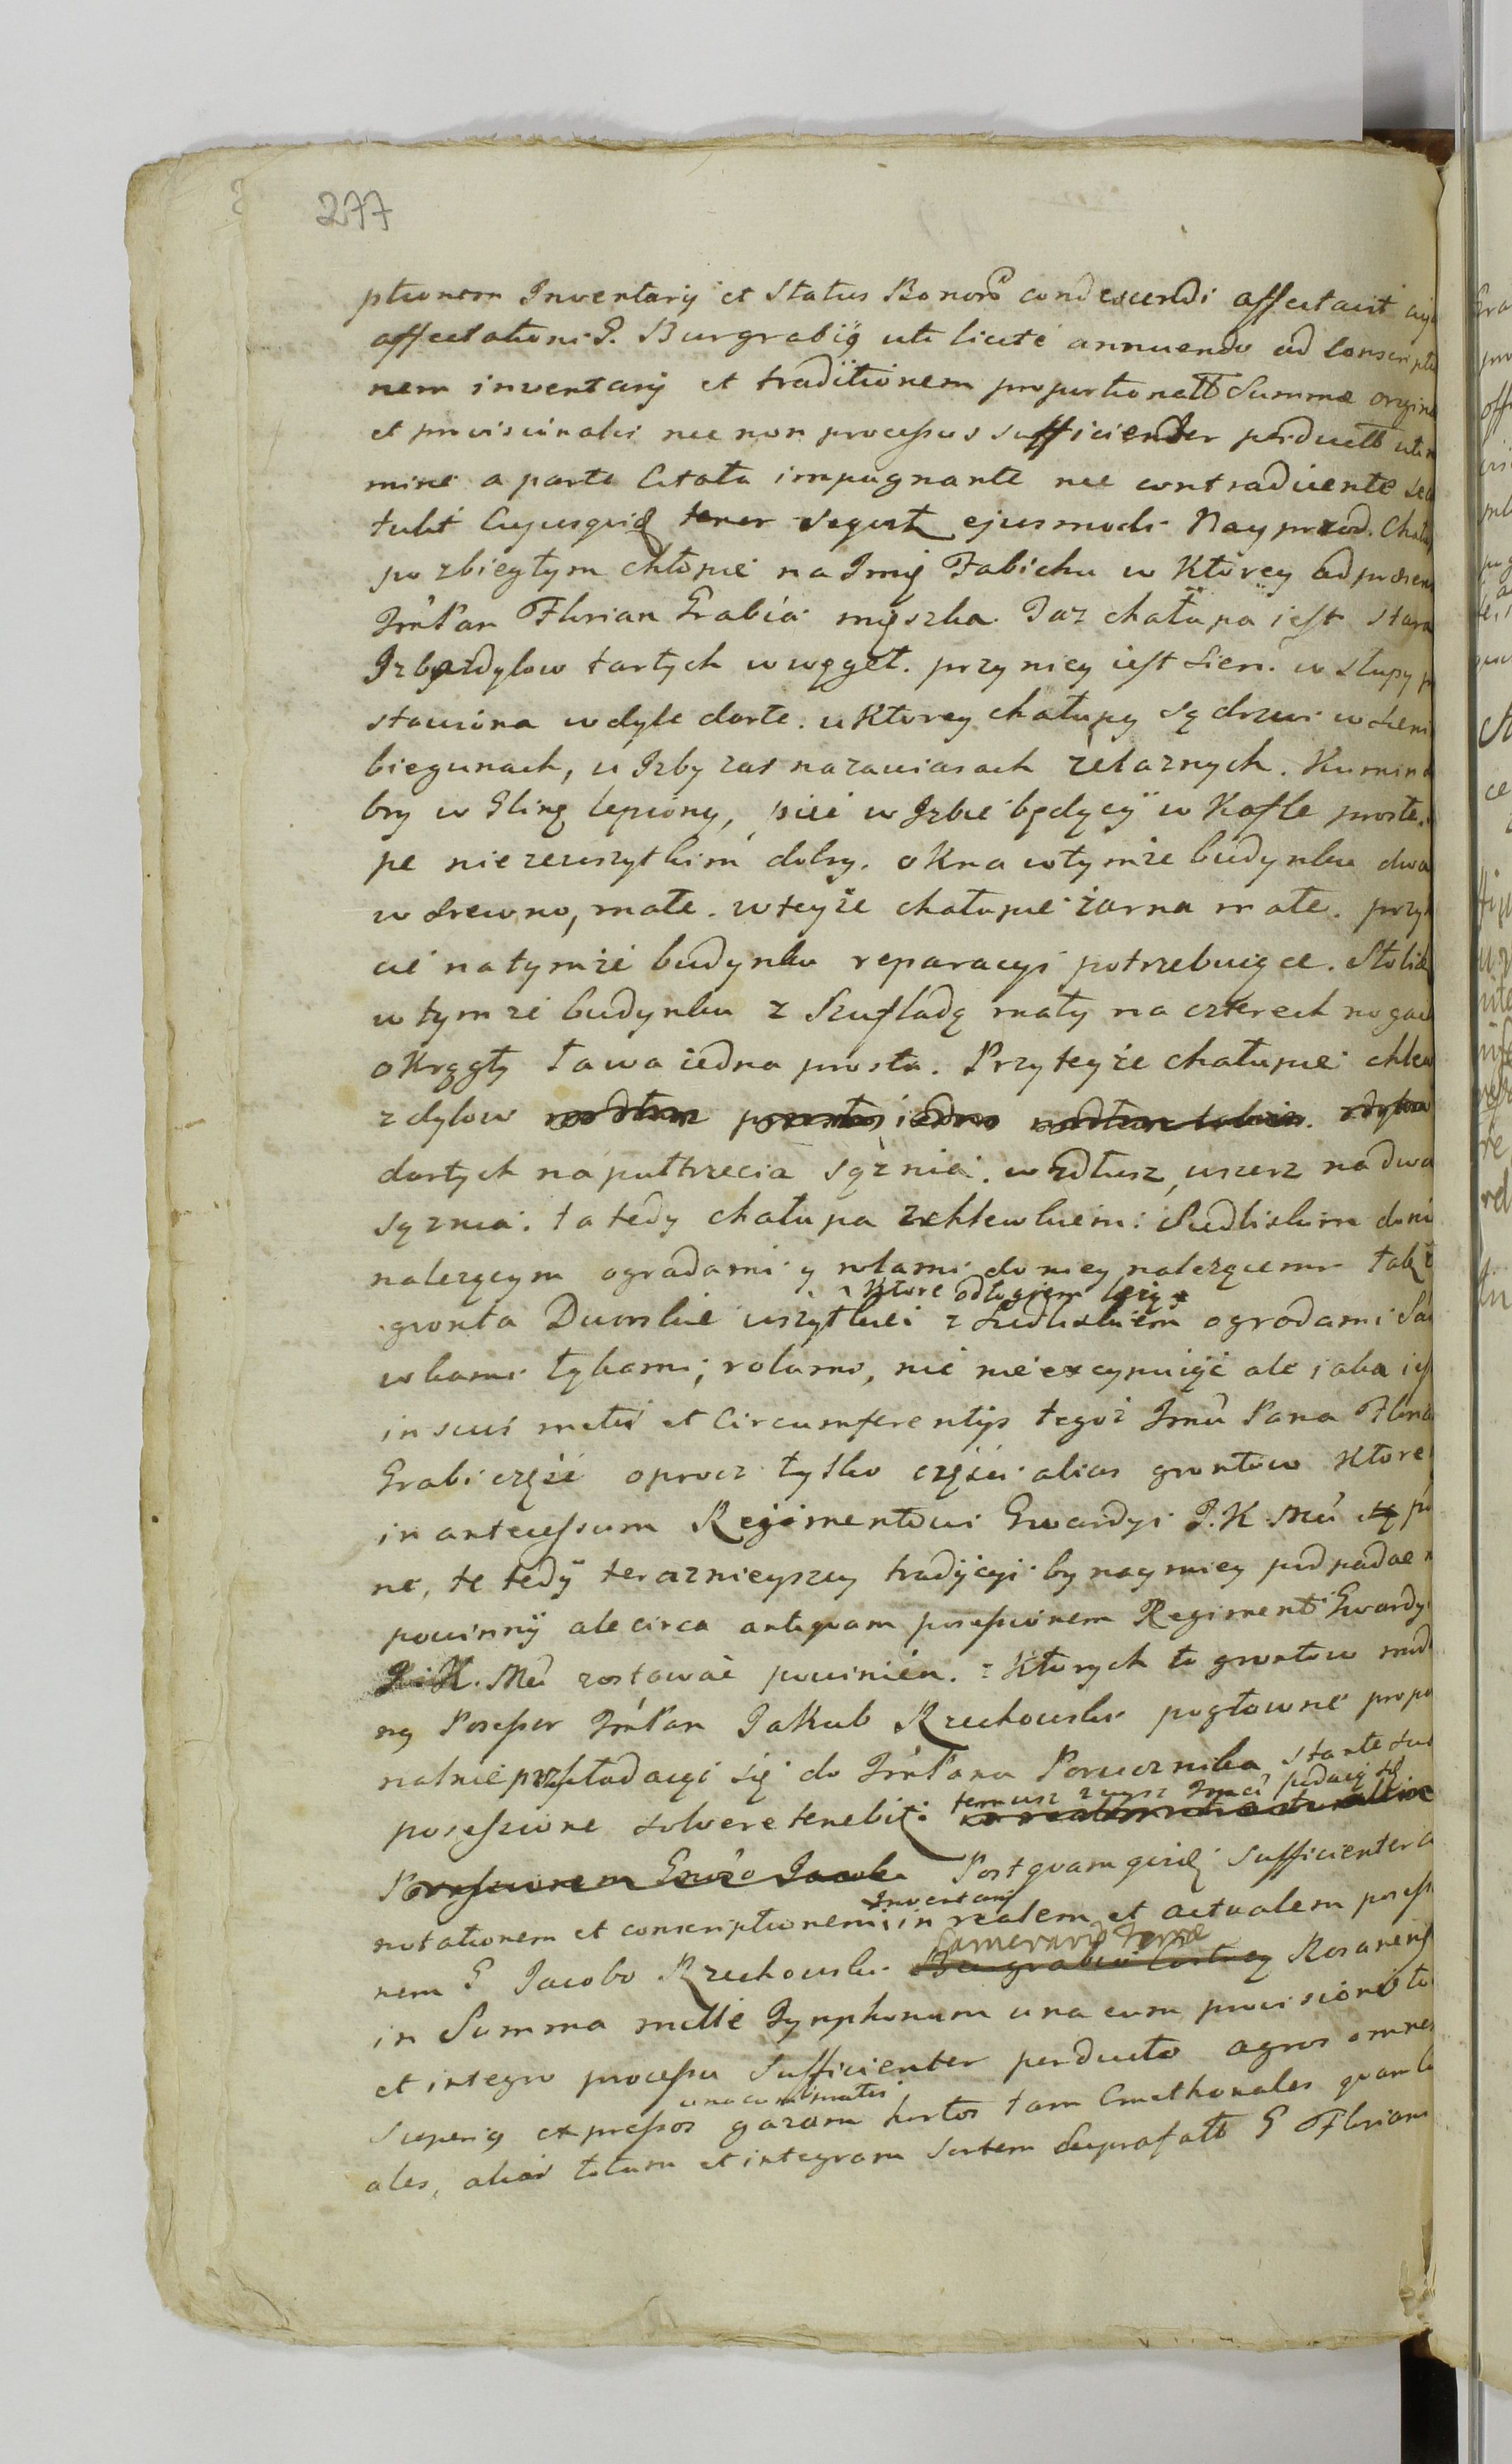 277
ptionem Inventarij et Status Bonor condescendi affectavit
affectationi G. Burgrabij uti licite annuendo ad conscriptio
nem inventarij et traditionem proportionatt Summæ orygina
et provisionalis nec non processus sufficienter perductt
mine a parte Citata impugnante nec contradicente
tulit Cujusquid tenor sequit ejusmodi Nayprzod. Chału
po zbiegłym chłopie na Imię Fabichu w Ktorey ad præsens
JmPan Florian Grabia myszka. Taz chałupa iest stara
Izba z dylow tartych w węgeł. przy niey iest sień. w słupy
stawiona w dyle darte. u Ktorey chałupy są drzwi w sieni
biegunach, u Izby zas na zawiasach żelaznych. Kumin
bry w Glinę lepiony, piec w Izbie będący w Kafle proste.
pe nie ze wszytkim dobry. okna w tymże budynku dwa
w drewno, małe. w teyże chałupie żarna małe. przy
cie na tymże budynku reparacyi potrzebuiące. Stolik
w tymże budynku z Szufladą mały na czterech nogach
okrągły ława iedna prosta. Przy teyże chałupie chlew
z dylow
dartych na pułtrzecia sążnia. w zdłusz, wszerz na dwa
sążnia. ta tedy chałupa z chlewkiem Siedliskiem do ni
należącym ogrodami y rolami do niey należącemi
Ktore odłogiem leżą
gronta Dworskie wszytkie z siedliskiem ogrodami
wkami łąkami, rolami, nic nie excypuiąc ale iaka ies
in suis metis et Circumferentijs tegoż Jmci Pana Flor
Grabi część oprocz tylko części alias grontow Ktore
in antecessum Regimentowi Gwardyi J. K. Mci
ne, te tedy terazniejszey tradycyi bynaymniey podpadac
powinny ale circa antiquam possessionem Regiment Gwardy
J. K. Mci zostawać powinien. z Ktorych to grontow
ny Possesor JmPan Jakub Rzechowski pogłowne propo
nalnie przykładaiąc się do JmPana Porucznika stante
possessione solvere tenebit.
Possessionem Postquam quid sufficienter
notationem et conscriptionem Inventarij in realem et actualem possess
Camerario Terræ
nem G Jacobo Rzechowski Burgrabio Castren Rosanens
in Summa mille Tynphonum una cum provisione
et integro processu Sufficienter perducto agros omnes
una cum pratis
Superius expressos gazam hortos tam Cmethonales quam
ales, alias totam et integram sortem Suprafatt G Florian